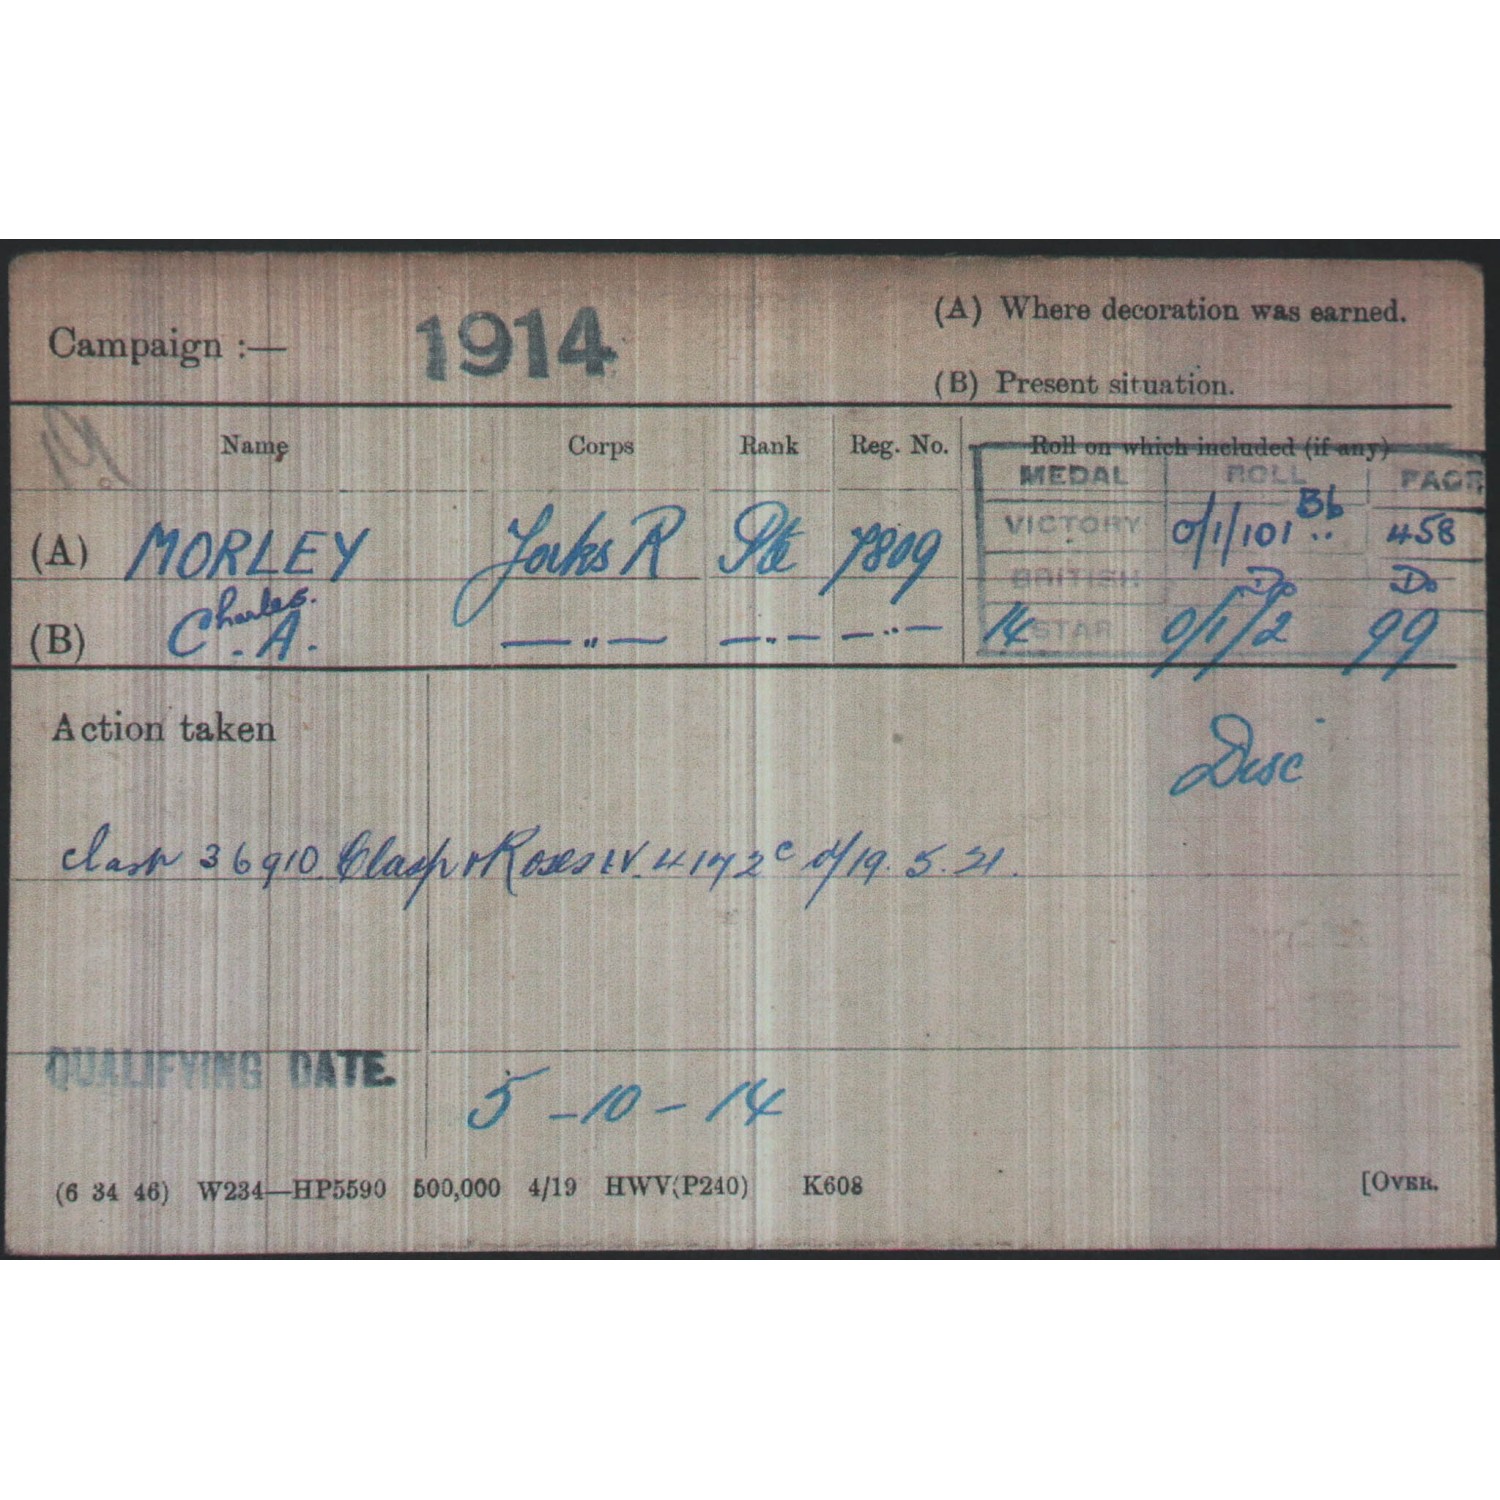 Campaign :— 1914
(A) Where decoration was earned.
(B) Present situation.
Name Corps Rank Reg. No. Roll on which included (if any)
MEDAL ROLL PAGE
(A) MORLEY Yorks R Pte 7809 VICTORY O/1/101 Bb 458
BRITISH Do Do
(B) C. Charles. A. —"— —"— —"— 14 STAR O/1/2 99
Action taken
Disc
Clasp 36910 Clasp & Roses IV. 4172c d/19.5.21.
QUALIFYING DATE. 5-10-14
(6 34 46) W234—HP5590 500,000 4/19 HWV(P240) K608 [OVER.